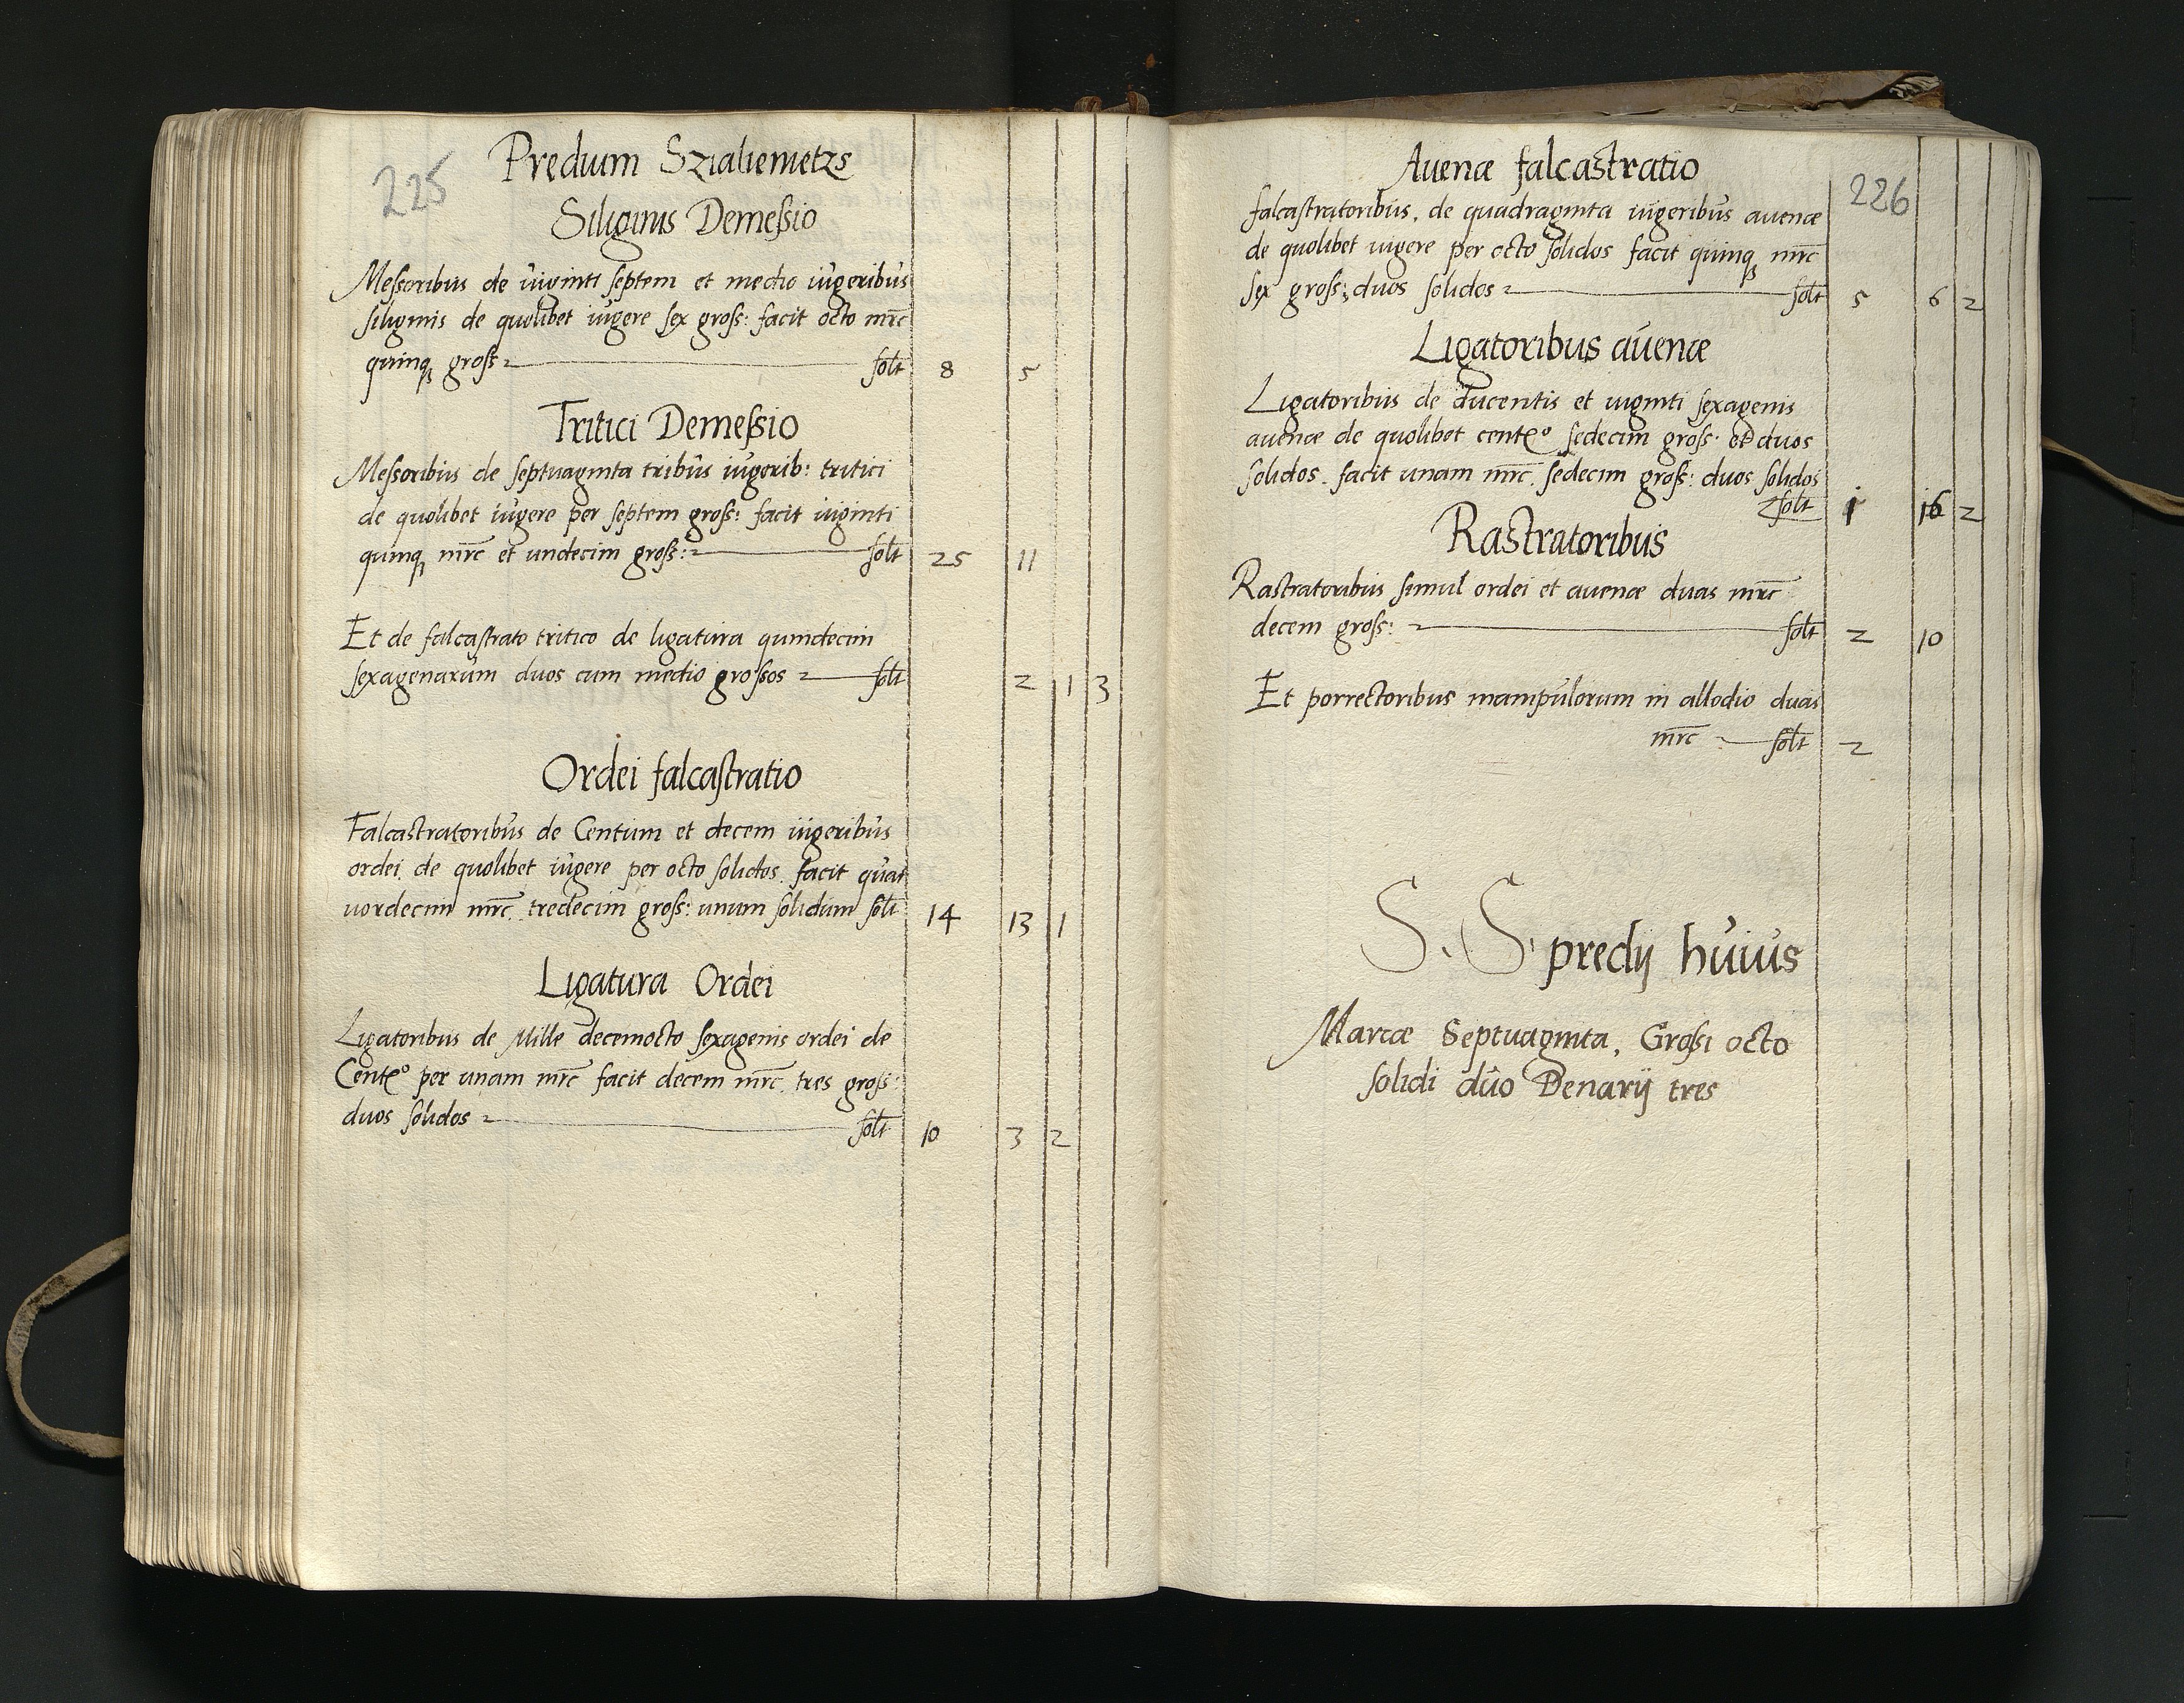 225
Predium Szialiemetzs
Siliginis Demeßio
Messoribus de viginti septem et medio iugeribus
siliginis de quolibet iugere sex gross: facit octo mrc
quinq gross solt 8 5
Tritici Demeßio
Messoribus de septuaginta tribus iugerib: tritici
de quolibet iugere per septem gross: facit viginti
quinq mrc et undecim gross: solt 25 11
Et de falcastrato tritico de ligatura quindecim
sexagenarum duos cum medio grossos solt 2 1 3
Ordei falcastratio
Falcastratoribus de Centum et decem iugeribus
ordei de quolibet iugere per octo solidos facit quat
uordecim mrc tredecim gross: unum solidum solt 14 13 1
Ligatura Ordei
Ligatoribus de Mille decemocto sexagenis ordei de
Cento per unam mrc facit decem mrc tres gross:
duos solidos solt 10 3 2
226
Auenæ falcastratio
falcastratoribus. de quadraginta iugeribus auenæ
de quolibet iugere per octo solidos facit quinq mrc
sex gross: duos solidos solt 5 6 2
Ligatoribus auenæ
Ligatoribus de ducentis et viginti sexagenis
auenæ de quolibet cento sedecim gross: et duos
solidos. facit unam mrc. sedecim gross: duos solidos
solt 1 16 2
Rastratoribus
Rastratoribus simul ordei et auenæ duas mrc
decem gross: solt 2 10
Et porrectoribus manipulorum in allodio duas
mrc solt 2
S. S. predij huius
Marcæ Septuaginta, Großi octo
solidi duo Denarij tres